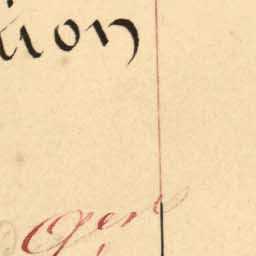 tion
Gen